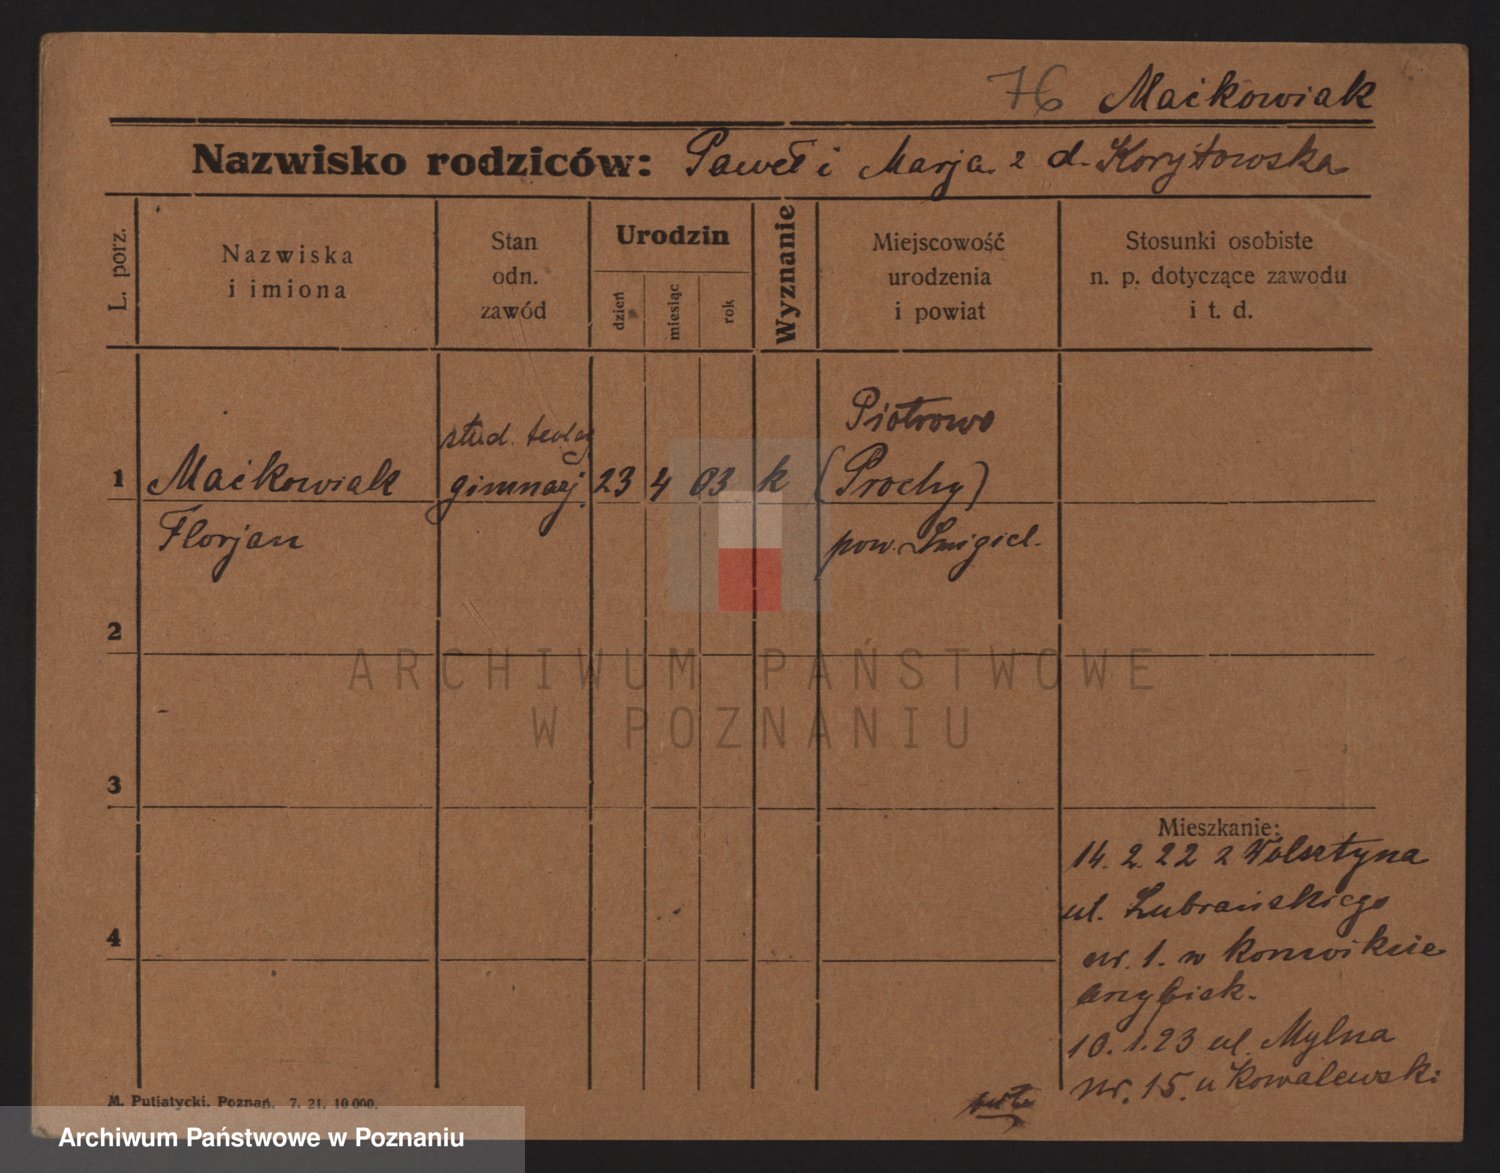 76 Maćkowiak
Nazwisko rodziców: Paweł i Marja z d. Korytowska
L. porz.
Nazwiska
i imiona
Stan
odn.
zawód
Urodzin
dzień
miesiąc
rok
Wyznanie
Miejscowość
urodzenia
i powiat
Stosunki osobiste
n. p. dotyczące zawodu
i t. d.
Piotrowo
stud. teolog
1 Maćkowiak gimnazj. 23 4 03 k (Prochy)
Florjan pow. Śmigiel.
2
ARCHIWUM PAŃSTWOWE
W POZNANIU
3
Mieszkanie:
14. 2. 22 z Wolsztyna
ul. Lubrańskiego
4
nr. 1. w konwikcie
arcybisk.
10. 1. 23 ul. Mylna
nr. 15. u Kowalewski
M. Putiatycki, Poznań. 7. 21. 10 000.
Archiwum Państwowe w Poznaniu